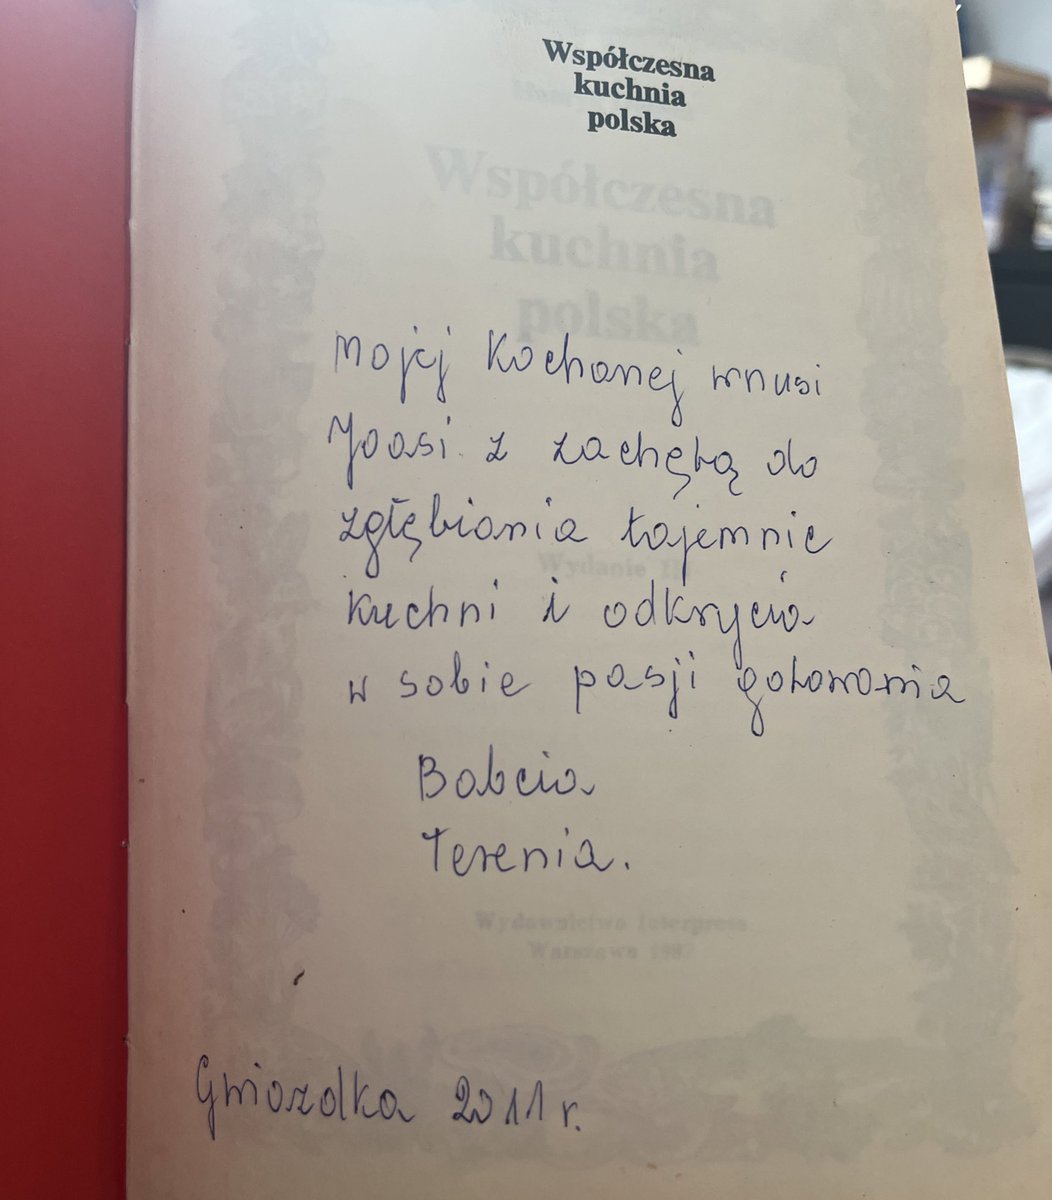 Współczesna
kuchnia
polska
Współczesna
kuchnia
polska
Mojej Kochanej wnusi
Joasi z zachętą do
zgłębiania tajemnic
kuchni i odkrycia
Wydanie III
w sobie pasji gotowania
Babcia
Terenia.
Wydawnictwo Interpress
Warszawa 1987
Gwiazdka 2011 r.